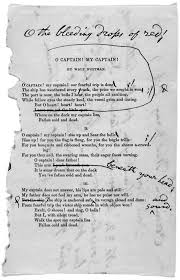 O the bleeding drops of red!
O CAPTAIN! MY CAPTAIN!
BY WALT WHITMAN
I.
O CAPTAIN! my captain! our fearful trip is done;
The ship has weathered every rack, the prize we sought is won;
The port is near, the bells I hear, the people all exulting,
While follow eyes the steady keel, the vessel grim and daring
But O heart! heart! heart!
Where on the deck my captain lies,
Fallen cold and dead.
II.
O captain! my captain! rise up and hear the bells;
Rise up! for you the flag is flung, for you the bugle trills:
For you bouquets and ribboned wreaths, for you the shores a-crowding:
For you they call, the swaying mass, their eager faces turning
beneath your head;
It is some dream that on the deck
You've fallen cold and dead.
III.
My captain does not answer, his lips are pale and still
My father does not feel my arm, he has no pulse nor will
and sound
From fearful trip the victor ship comes in with object won!
Exult, O shores! and ring, O bells!
But I, with silent tread,
Walk the spot my captain lies
Fallen cold and dead.